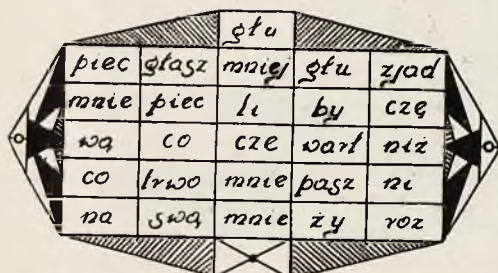 głu
piec głasz mniej głu zjad
mnie piec li by czę
wą co cze wart niż
co trwo mnie pasz ni
na swą mnie ży roz